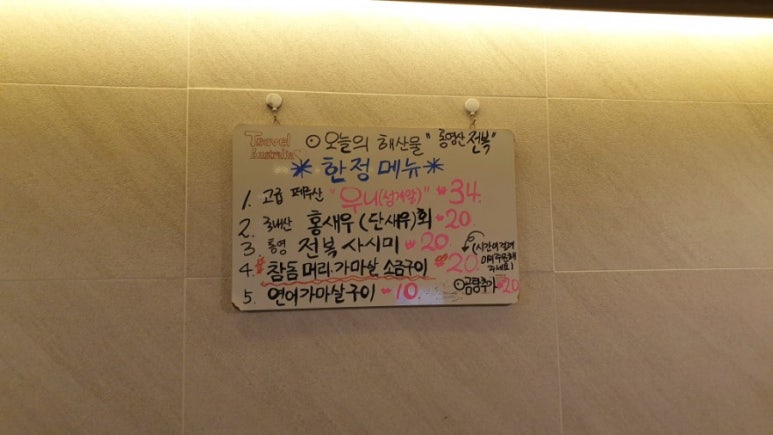 Travel Australia
⊙오늘의 해산물 "통영산 전복"
*한정메뉴*
1. 고급 페루산 "우니(성게알)" ₩34.
2. 국내산 홍새우(단새우)회 ₩20
3. 통영 전복사시미 ₩20.
4. *참돔머리.가마살 소금구이 ₩20.
(시간이걸려
미리주문해
주세요!)
5. 연어가마살구이 ₩10.
⊙곰탕추가 ₩20